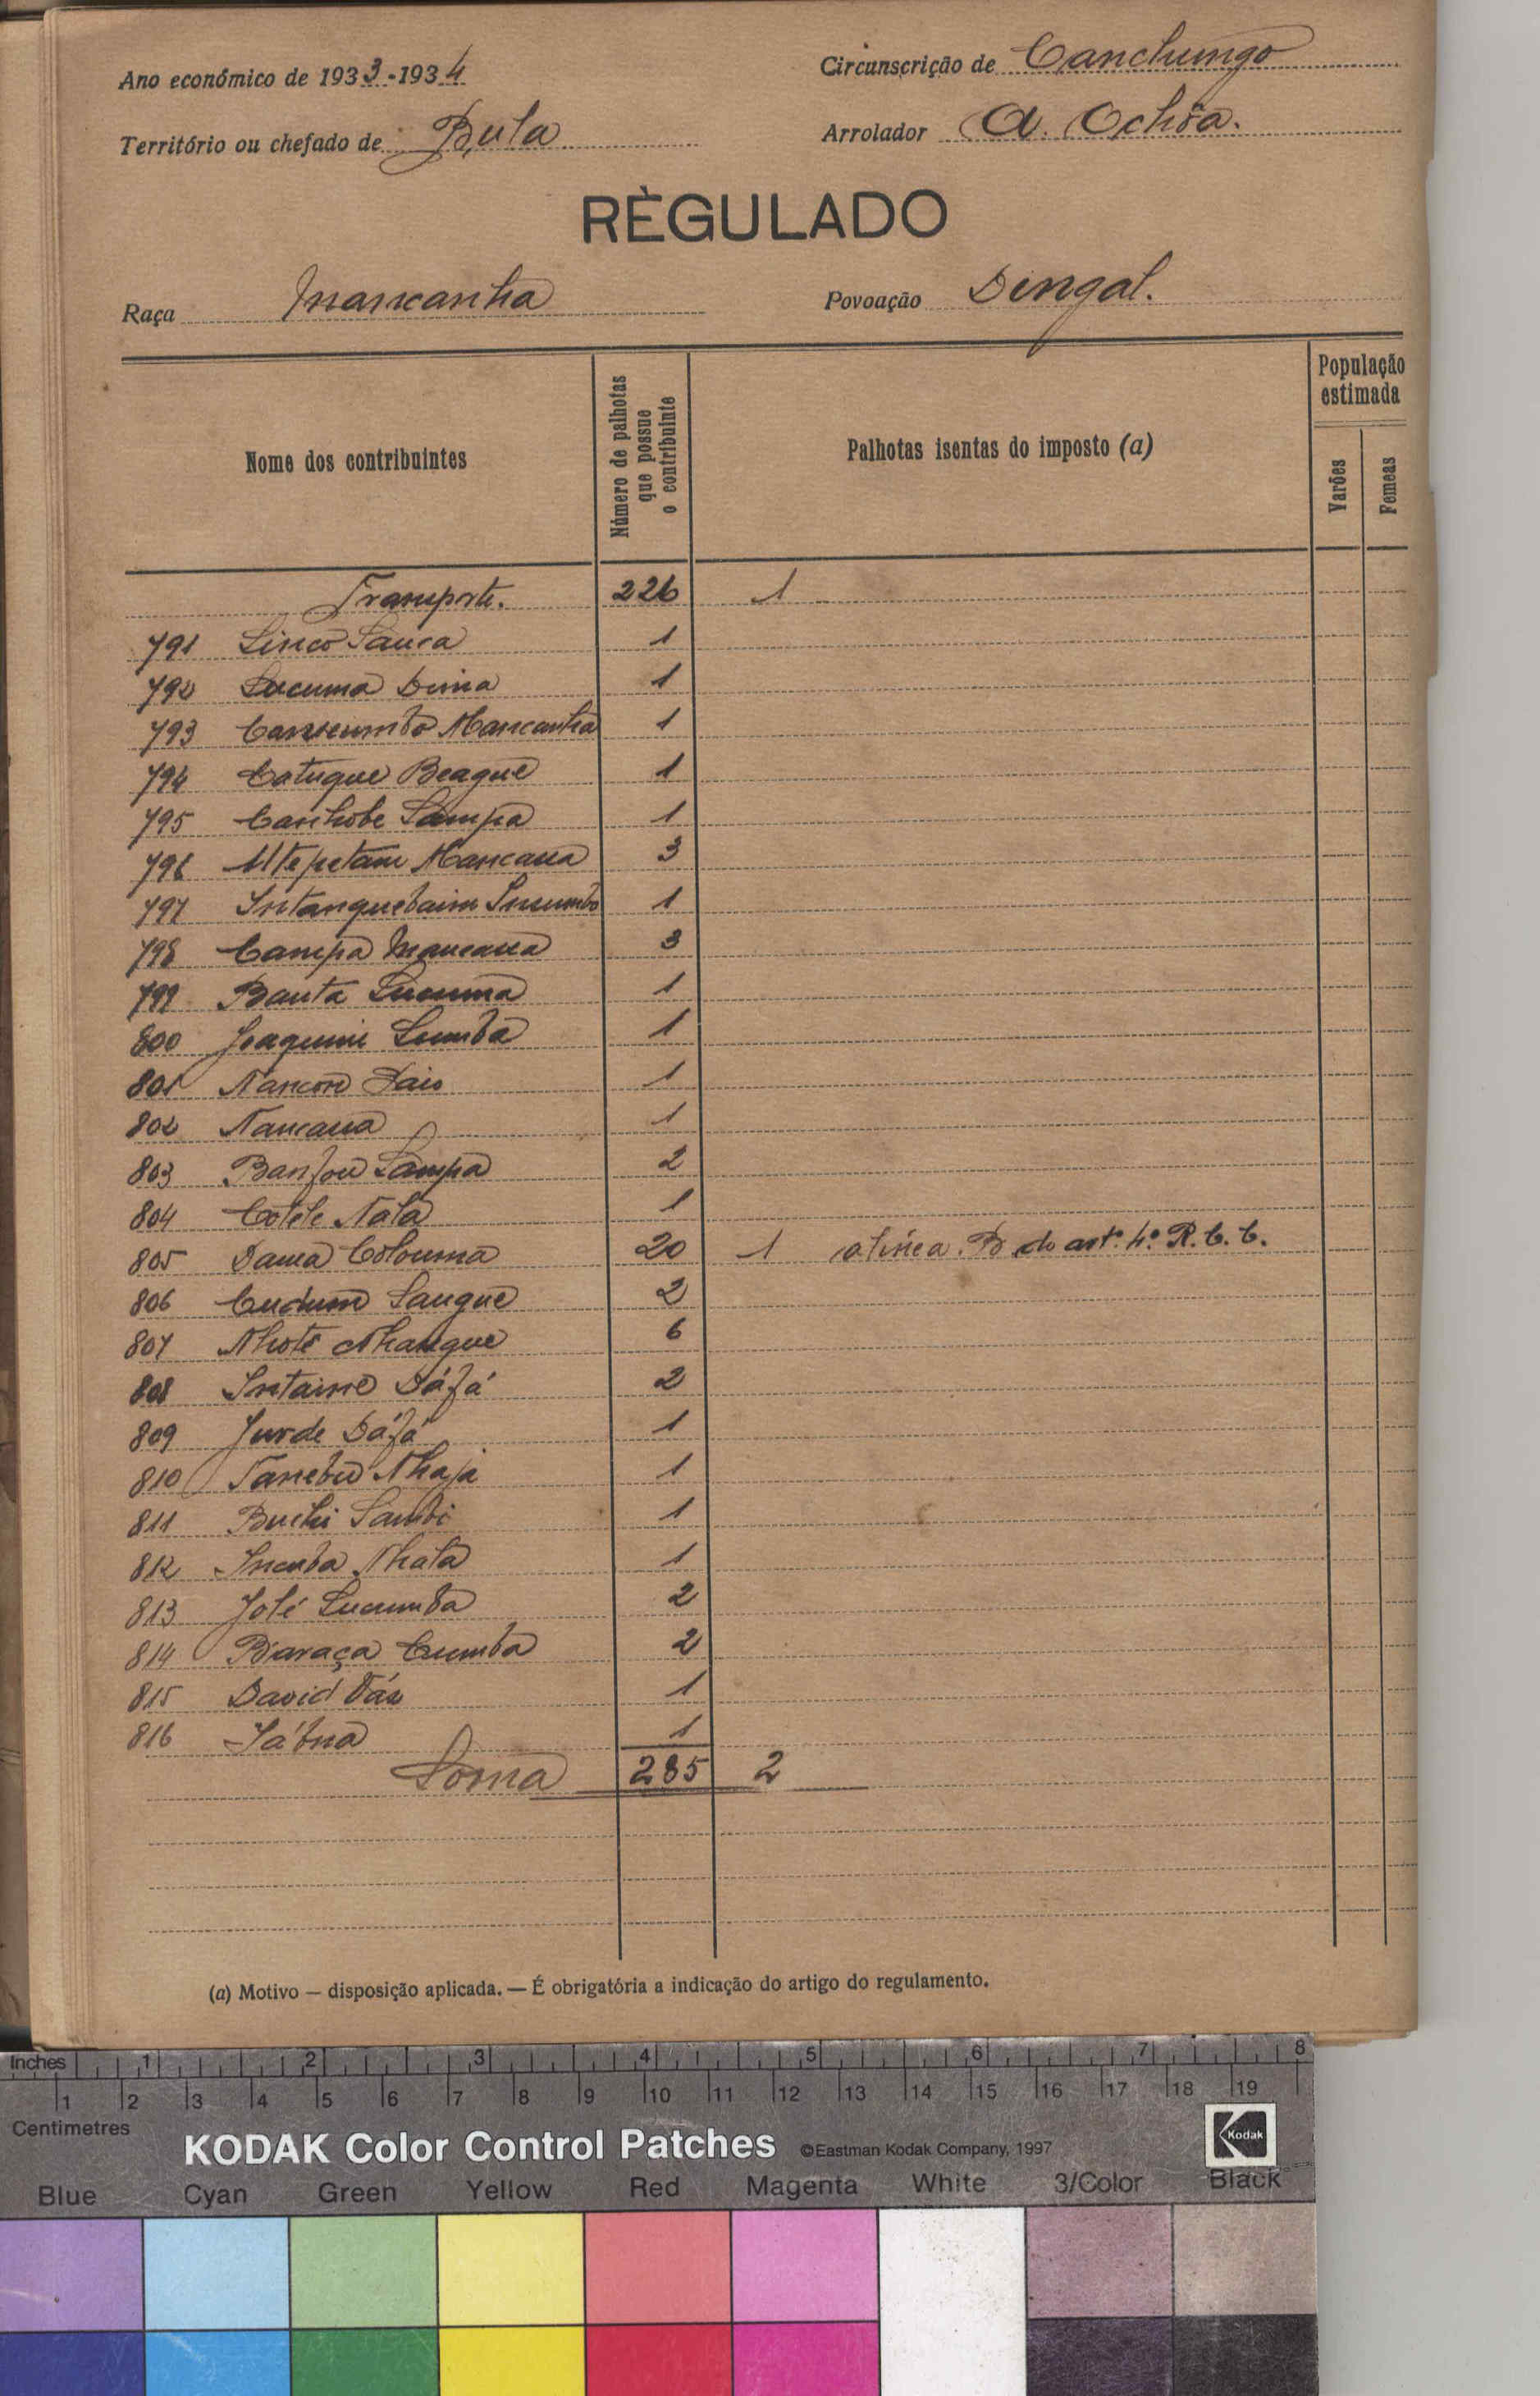 Ano económico de 1933-1934
Circunscrição de Canchungo
Território ou chefado de Bula
Arrolador A. Ochôa.
RÈGULADO
Raça Mancanha
Povoação Dingal.
Nome dos contribuintes
Número de palhotas que possue o contribuinte
Palhotas isentas do imposto (a)
População estimada
Varões
Femeas
Transporte. 226 1
791 Linco Sanca 1
792 Lucuma Dima 1
793 Mancanha 1
794 Catuque Beague 1
795 Canhobe Sampa 1
796 3
797 1
798 Campa Mancaua 3
799 Banta Lucuma 1
800 Joaquim Lumba 1
801 Nancon 1
802 Nancaua 1
803 Sampa 2
804 Cotete Nala 1
805 20 1 alinea B do artº 4º R. C. C.
806 Cudum Sangue 2
807 Nhote Nhangue 6
808 Intaime Dáfá 2
809 Jurde Dáfá 1
810 Nhaja 1
811 Buchi Sambi 1
812 Incuba Nhata 1
813 Jolé Lucumba 2
814 Baraça Cumba 2
815 David Vás 1
816 Sábna 1
Soma 285 2
(a) Motivo — disposição aplicada. — É obrigatória a indicação do artigo do regulamento.
Inches 1 2 3 4 5 6 7 8
1 2 3 4 5 6 7 8 9 10 11 12 13 14 15 16 17 18 19
Centimetres
KODAK Color Control Patches ©Eastman Kodak Company, 1997 Kodak
Blue Cyan Green Yellow Red Magenta White 3/Color Black